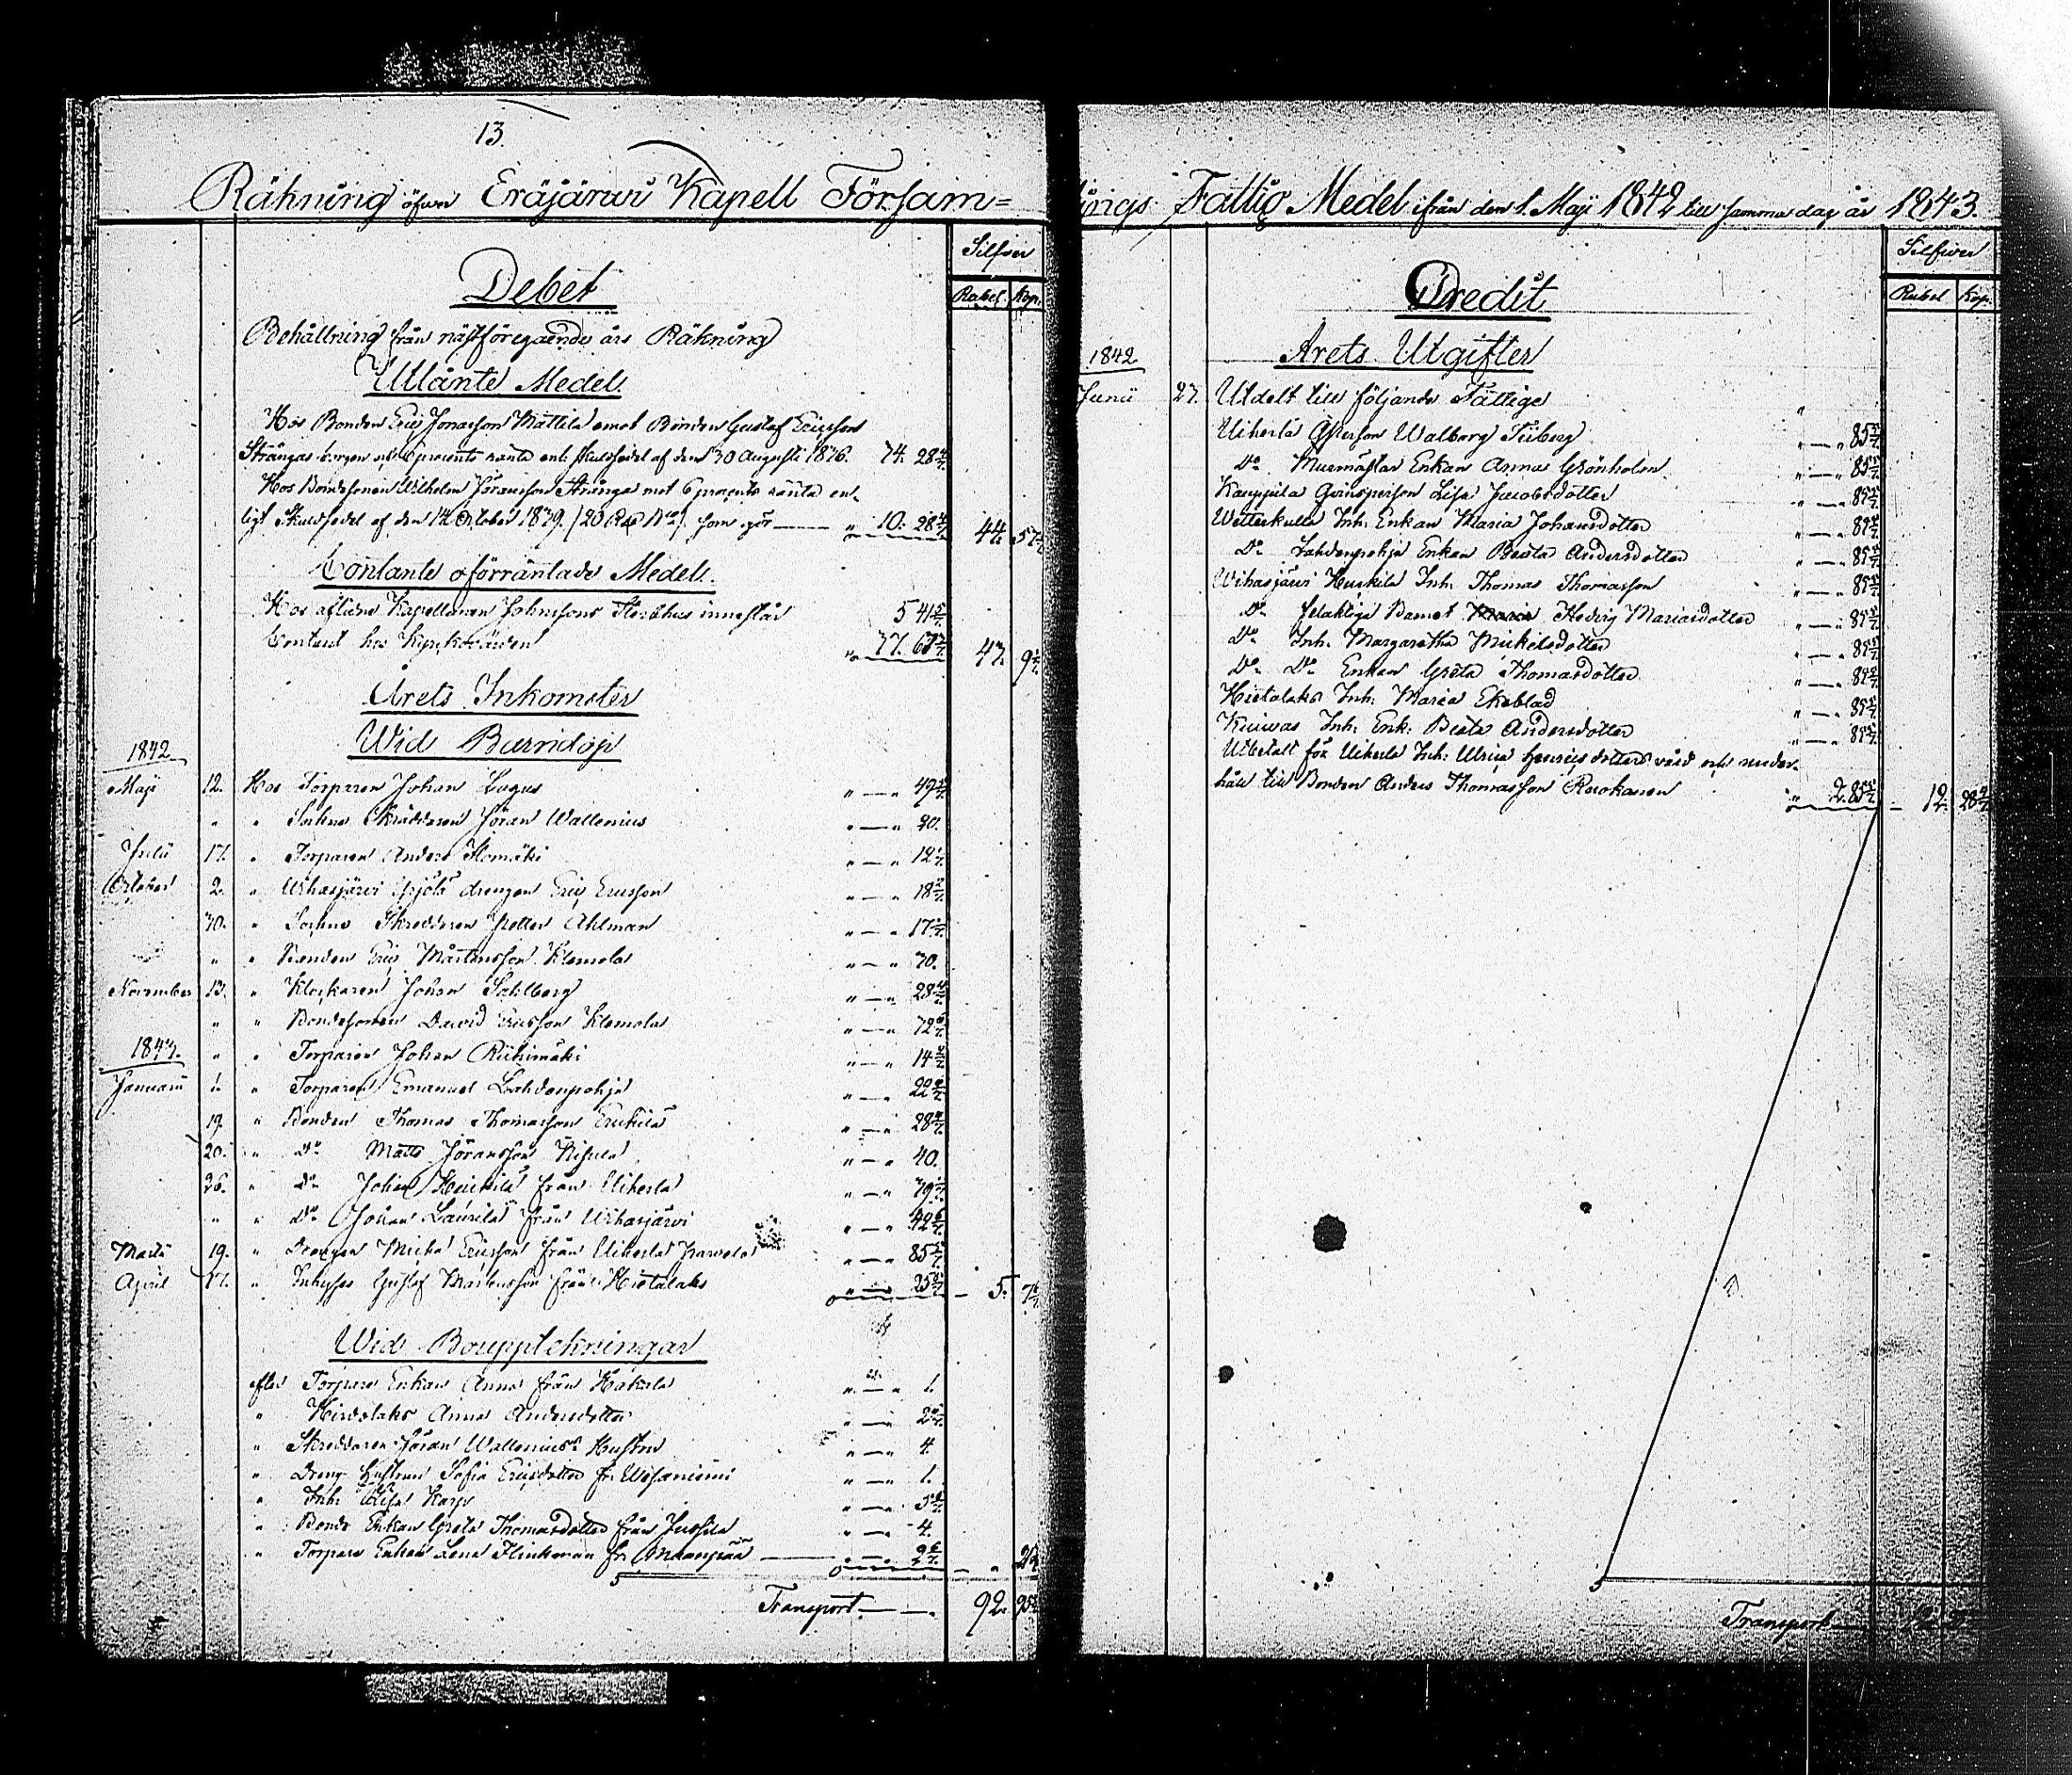 13.
Räkning öfver Eräjärvi Kapell Församlings Fattig Medel ifrån den 1. Maji 1842 till samma dag år 1843.
Silfver
Rubel. Kop.
Debet
Behållning från nästföregående års Räkning
Utlånte Medel.
Hos Bonden Eric Jonasson Mattila emot Bonden Gustaf Ericsson
Strångas borgen och 6 procents ränta enl. skuldsedel af den 30 Augusti 1836. 34. 28 4/7
Hos Bondesonen Wilhelm Jöransson Strånga mot 6 procents ränta en-
ligt Skuldsedel af den 14 October 1839. (20 Rdr Bco) som gör — " 10. 28 4/7. 44. 57 1/7
Contante oförräntade Medel.
Hos aflidne Kapellanen Johnssons Sterbhus innestår 5 41 5/7
Contant hos Kyrkovärden 47. 9 3/7
Årets Inkomster
Wid Barndop
1842
Maji 12. Hos Torparen Johan Lagus " — " 49 1/7
" " Sahno Skräddaren Jöran Wallenius " — " 20.
Julii 17. " Torparen Anders Homäki " — " 12 1/7
October 2. " Wihasjärvi Yrjölä drengen Eric Ericsson " — " 18
30. " Sahno Skreddaren Petter Ahlman " — " 17 1/7
" " Bonden Eric Mårtensson Klemola " — " 30.
November 13. " Klockaren Johan Sahlberg " — " 28 4/7
" " Bondesonen David Ericsson Klemola " — " 32 6/7
1843. " " Torparen Johan Riihimäki " — " 14 2/7
Januarii 1. " Torparen Emanuel Lahdenpohja " — " 22 6/7
19. " Bonden Thomas Thomasson Erickilä " — " 28 4/7
20. " Do Matts Jöransson " — " 40.
26. " Do Johan Heickilä från Uiherla " — " 39
" " Do Johan Laurila från Wihasjärvi " — " 42 6/7
Martii 19. " Drengen Michel Ericsson från Uiherla " — " 85 5/7
April 17. " Inhyses Gustaf Mårtensson från Hietalaks " — " 25 5/7 — 5. 7
Wid Bouppteckningar
efter Torpare Enkan Anna från Hakerla " — " 1.
" Hirdolaks Anna Andersdotter " — " 2
" Skreddaren Jöran Wallenius's Hustru " — " 4.
" Dreng Hustrun Sofia Ericsdotter fr. Wesaniemi " — " 1.
" Inh: Lisa Karp " — "
" Bonde Enkan Greta Thomasdotter från Jussila " — " 4.
" Torpare Enkan Lena Flinkman fr.
Transport — 92. 95
Silfver
Rubel Kop.
Credit
Årets Utgifter
1842
Junii 27. Utdelt till följande Fattige
Uiherla Qvinsperson Walborg Fiiberg " — " 85 5/7
Do Murmästar Enkan Anna Grönholm " — " 85 5/7
Kauppila Qvinsperson Lisa Jacobsdotter " — " 85 5/7
Wetterkulla Inh: Enkan Maria Johansdotter " — " 85 5/7
Do Lahdenpohja Enkan Beata Andersdotter " — " 85 5/7
Wihasjärvi Heickilä Inh: Thomas Thomasson " — " 85 5/7
Do felaktiga Barnet Hedvig Mariasdotter " — " 85 5/7
Do Inh: Margaretha Michelsdotter " — " 85 5/7
Do Do Enkan Greta Thomasdotter " — " 85 5/7
Hietalaks Inh: Maria Ekeblad " — " 85 5/7
Kuivas Inh: Enk: Beata Andersdotter " — " 85 5/7
Utbetalt för Uiherla Inh: Ulrica Henricsdotters vård och under-
håll till Bonden Anders Thomasson Ruokanen " 2. 85 5/7 — 12. 28 4/7
Transport —